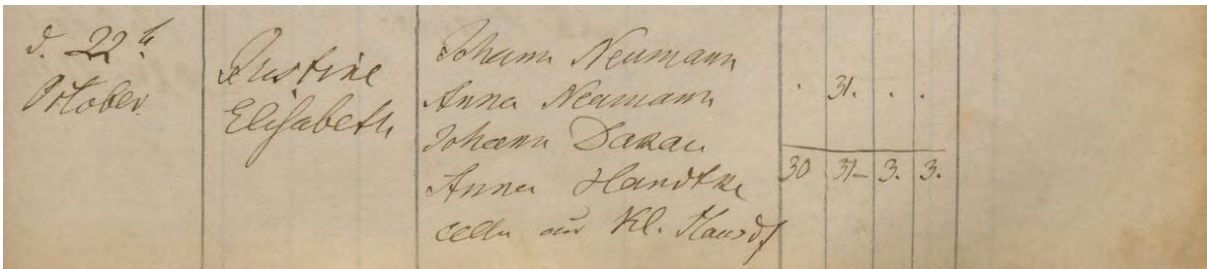 d. 22t
October.
Justine
Elisabeth
Johann Neumann
Anna Neumann
Johann Dakau
Anna Handtke
alle aus Kl. Mausdf
. 31. . .
30 31 3. 3.